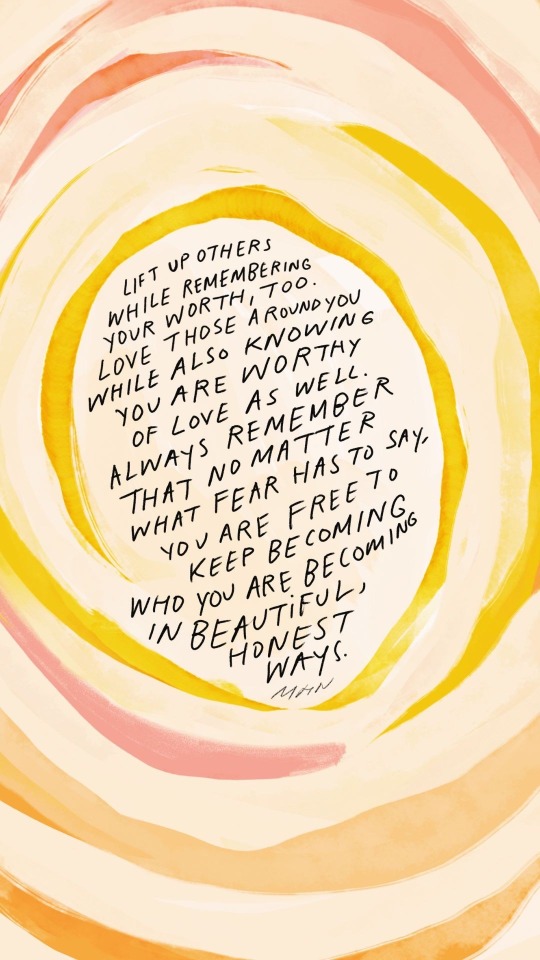 LIFT UP OTHERS
WHILE REMEMBERING
YOUR WORTH, TOO.
LOVE THOSE AROUND YOU
WHILE ALSO KNOWING
YOU ARE WORTHY
OF LOVE AS WELL.
ALWAYS REMEMBER
THAT NO MATTER
WHAT FEAR HAS TO SAY,
YOU ARE FREE TO
KEEP BECOMING
WHO YOU ARE BECOMING
IN BEAUTIFUL,
HONEST
WAYS.
MHN